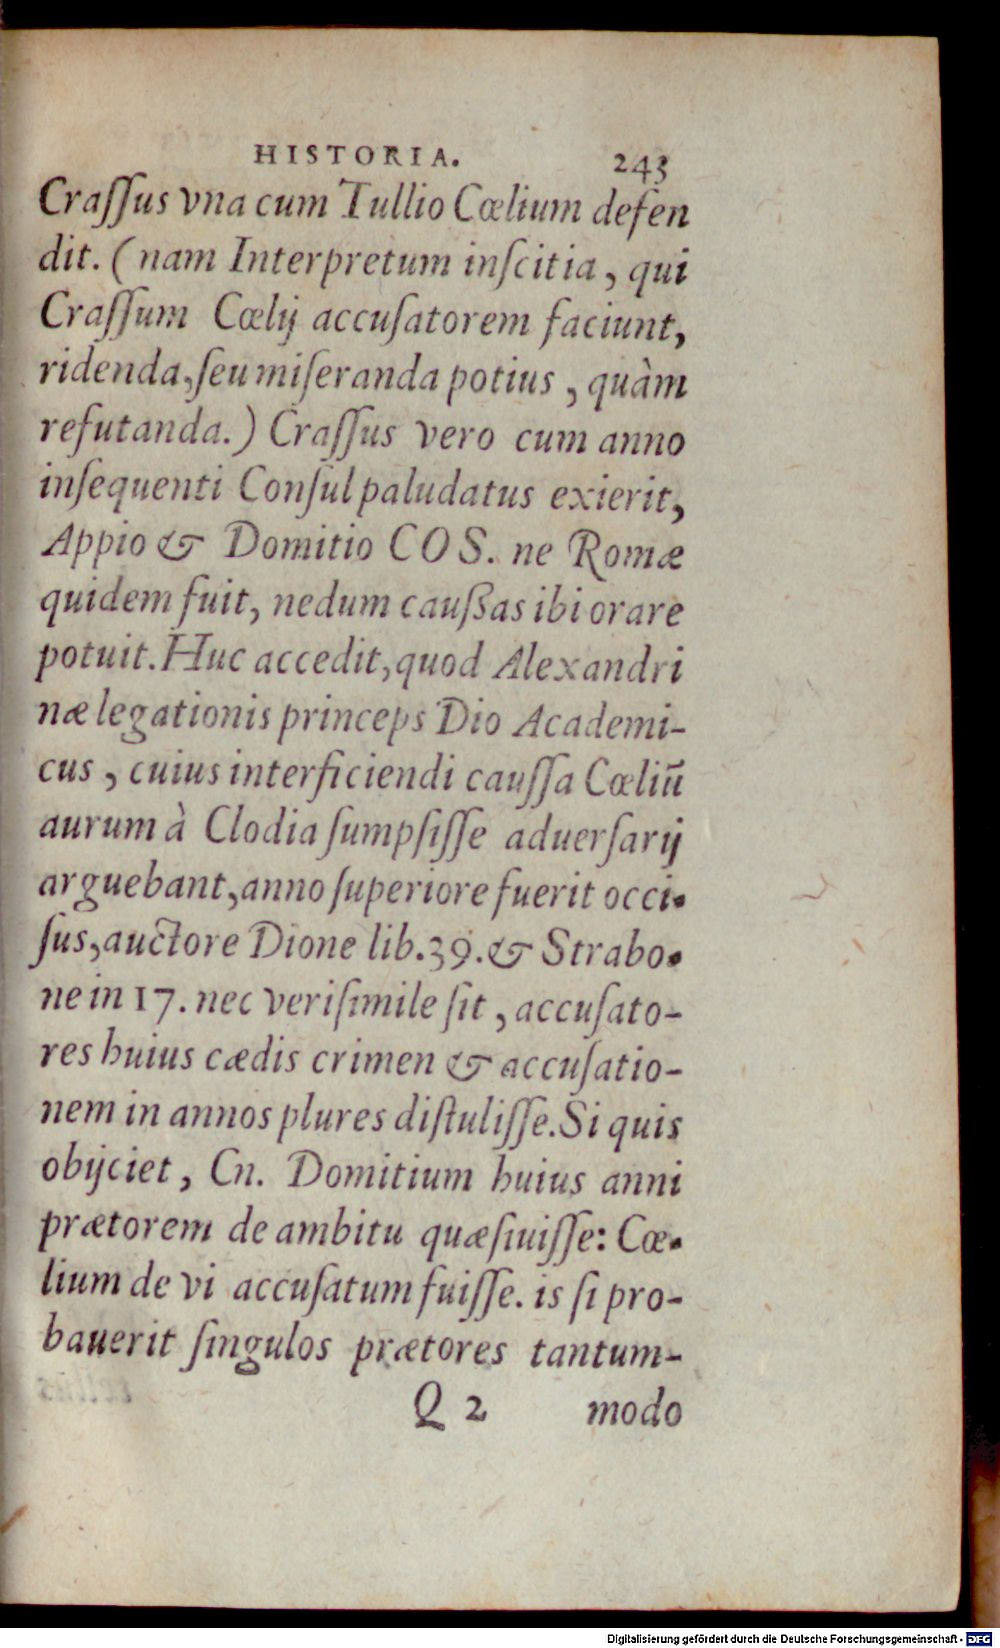 HISTORIA. 243
Craſſus vna cum Tullio Cœlium defen
dit. (nam Interpretum inſcitia, qui
Craſſum Cœlij accuſatorem faciunt,
ridenda, ſeu miſeranda potius, quàm
refutanda.) Craſſus vero cum anno
inſequenti Conſul paludatus exierit,
Appio & Domitio COS. ne Romæ
quidem fuit, nedum cauſsas ibi orare
potuit. Huc accedit, quod Alexandri
næ legationis princeps Dio Academi-
cus, cuius interficiendi cauſſa Cœliū
aurum à Clodia ſumpſiſſe aduerſarij
arguebant, anno ſuperiore fuerit occi-
ſus, auctore Dione lib. 39. & Strabo-
ne in 17. nec veriſimile ſit, accuſato-
res huius cædis crimen & accuſatio-
nem in annos plures diſtuliſſe. Si quis
obijciet, Cn. Domitium huius anni
prætorem de ambitu quæſiuiſſe: Cœ-
lium de vi accuſatum fuiſſe. is ſi pro-
bauerit ſingulos prætores tantum-
Q 2 modo
Digitalisierung gefördert durch die Deutsche Forschungsgemeinschaft - DFG